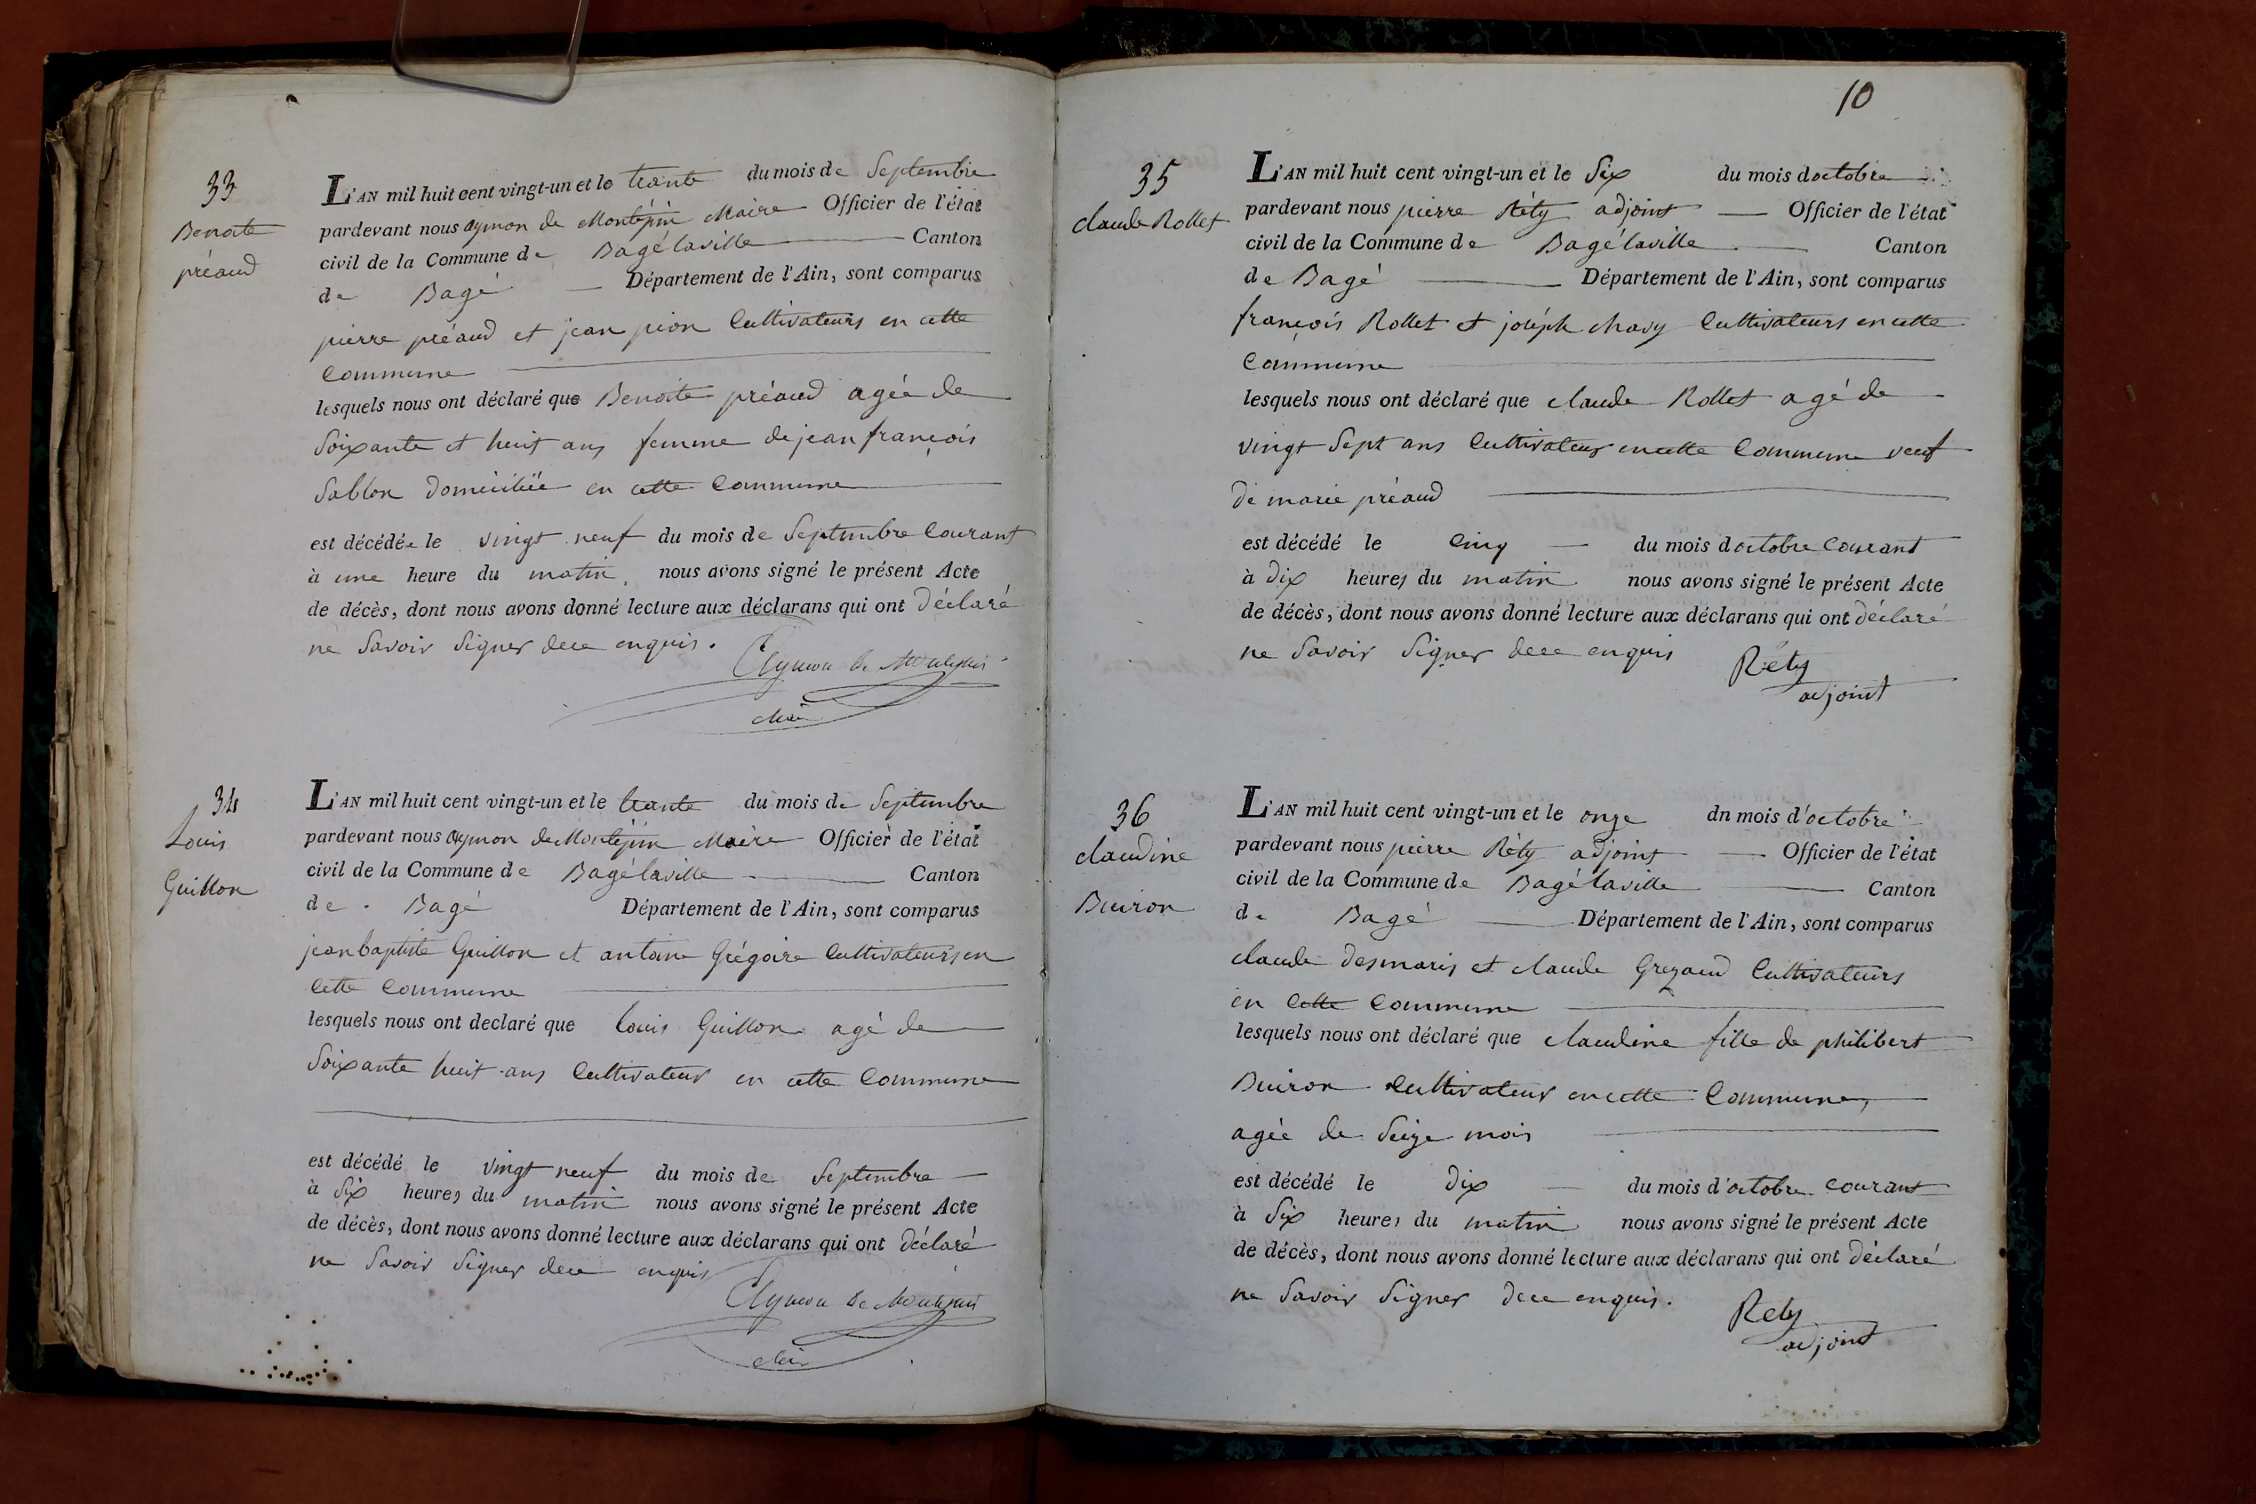 33
Benoite
préaud
L'AN mil huit cent vingt-un et le trante du mois de Septembre
pardevant nous aymon de Montépin Maire Officier de l'état
civil de la Commune de Bagélaville Canton
de Bagé Département de l'Ain, sont comparus
pierre préaud et jean pion Cultivateurs en cette
Commune
lesquels nous ont déclaré que Benoite préaud agée de
Soixante et huit ans femme de jean françois
Sablon domiciliée en cette Commune
est décédée le vingt neuf du mois de Septembre Courant
à une heure du matin, nous avons signé le présent Acte
de décès, dont nous avons donné lecture aux déclarans qui ont déclaré
ne Savoir Signer dece enquis.
Aymon de Montépin
Maire
34
Louis
Guillon
L'AN mil huit cent vingt-un et le trante du mois de Septembre
pardevant nous aymon de Montépin Maire Officier de l'état
civil de la Commune de Bagélaville Canton
de Bagé Département de l'Ain, sont comparus
jean baptiste Guillon et antoine Grégoire Cultivateurs en
Cette Commune
lesquels nous ont declaré que Louis Guillon agé de
Soixante huit ans Cultivateur en cette Commune
est décédé le vingt neuf du mois de Septembre
à Six heures du matin nous avons signé le présent Acte
de décès, dont nous avons donné lecture aux déclarans qui ont déclaré
ne Savoir Signer dece enquis
Aymon de Montépin
Maire
10
35
claude Rollet
L'AN mil huit cent vingt-un et le Six du mois doctobre
pardevant nous pierre Réty adjoint Officier de l'état
civil de la Commune de Bagélaville Canton
de Bagé Département de l'Ain, sont comparus
françois Rollet et joséph chavy Cultivateurs en cette
Commune
lesquels nous ont déclaré que claude Rollet agé de
vingt Sept ans Cultivateur en cette Commune veuf
de marie préaud
est décédé le Cinq du mois doctobre Courant
à dix heures du matin nous avons signé le présent Acte
de décès, dont nous avons donné lecture aux déclarans qui ont déclaré
ne Savoir Signer dece enquis
Réty
adjoint
36
claudine
Buiron
L'AN mil huit cent vingt-un et le onze dn mois d'octobre
pardevant nous pierre Réty adjoint Officier de l'état
civil de la Commune de Bagélaville Canton
de Bagé Département de l'Ain, sont comparus
claude desmaris et claude Grezaud Cultivateurs
en Cette Commune
lesquels nous ont déclaré que claudine fille de philibert
Buiron Cultivateur en cette Commune,
agée de Seize mois
est décédé le dix du mois d'octobre Courant
à Six heures du matin nous avons signé le présent Acte
de décès, dont nous avons donné lecture aux déclarans qui ont déclaré
ne Savoir Signer dece enquis.
Réty
adjoint